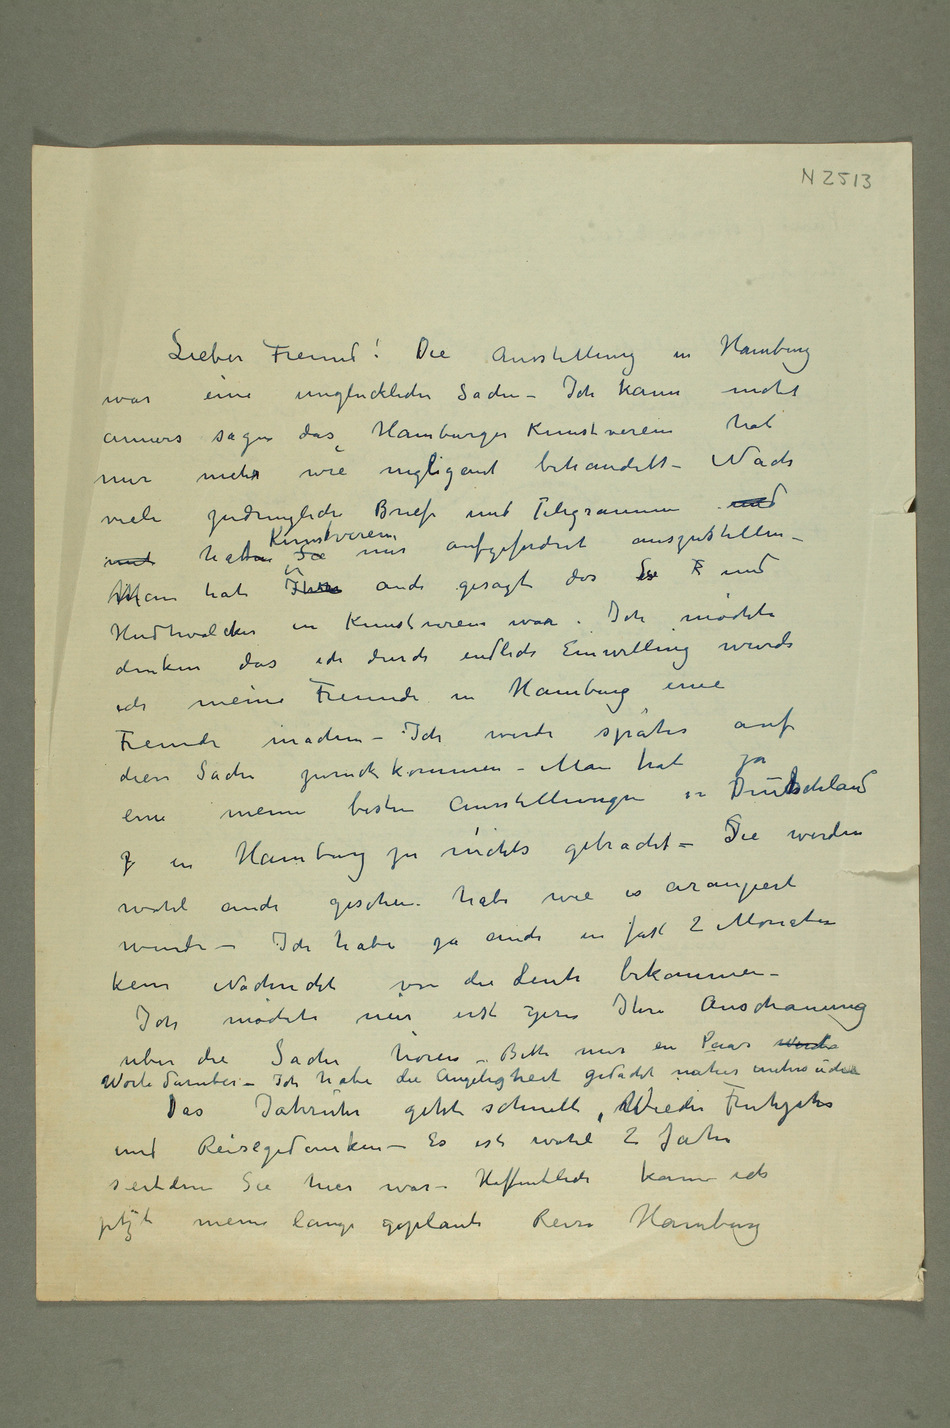 N 2513
Lieber Freund! Die Ausstellung in Hamburg
war eine unglückliche Sache – Ich kann nicht
anners sagen das Hamburger Kunstverein hat
mir mehr wie negligant behandelt – Nach
viele zudringliche Briefe und Telegramme und
und hatte Kunstverein Sie mir aufgefordret auszustellen –
Man hat Ihnen auch gesagt das Sie und
Hudtwalcker in Kunstverein war. Ich möchte
denken das ich durch endlich Einwilling wurde
ich meine Freunde in Hamburg eine
Freude machen – Ich werde später auf
diese Sache zurückkommen – Man hat ja
eine meine besten Ausstellungen in Deutschland
z in Hamburg zu nichts gebracht – Sie werden
wohl auch gesehen habe wie es arangiert
wurde – Ich habe ja auch in fast 2 Monaten
kein Nachricht von die Leute bekommen –
Ich möchte nur erst gern Ihre Anschauung
über die Sache hören – Bitte mir en Paar Worte
Worte darüber – Ich habe die Angeligheit gedacht naher
Das Jahruhr geht schnell, Wieder Fruhjahr
und Reisegedanken – Es ist wohl 2 Jahr
seitdem Sie hier war – Hoffentlich kann ich
jetzt meine lange geplante Reise Hamburg